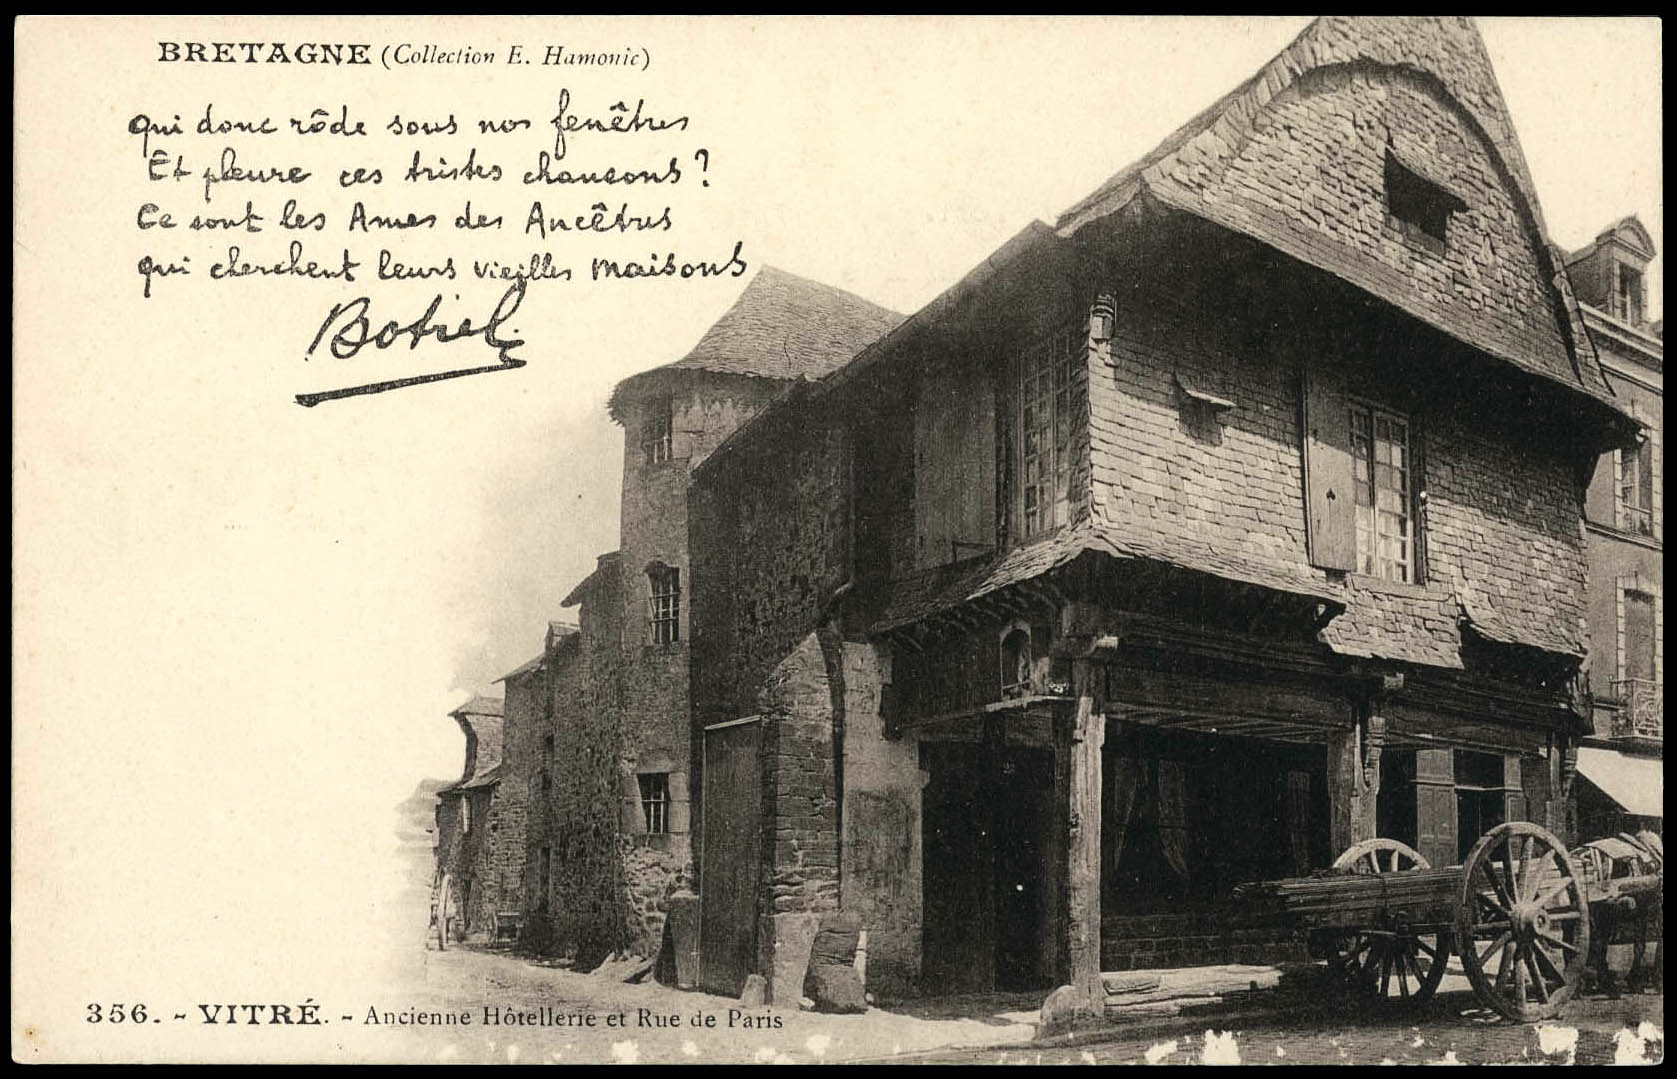 BRETAGNE (Collection E. Hamonic)
qui donc rôde sous nos fenêtres
Et pleure ces tristes chansons ?
Ce sont les Ames des Ancêtres
qui cherchent leurs vieilles maisons
Botrel
356. - VITRÉ. - Ancienne Hôtellerie et Rue de Paris